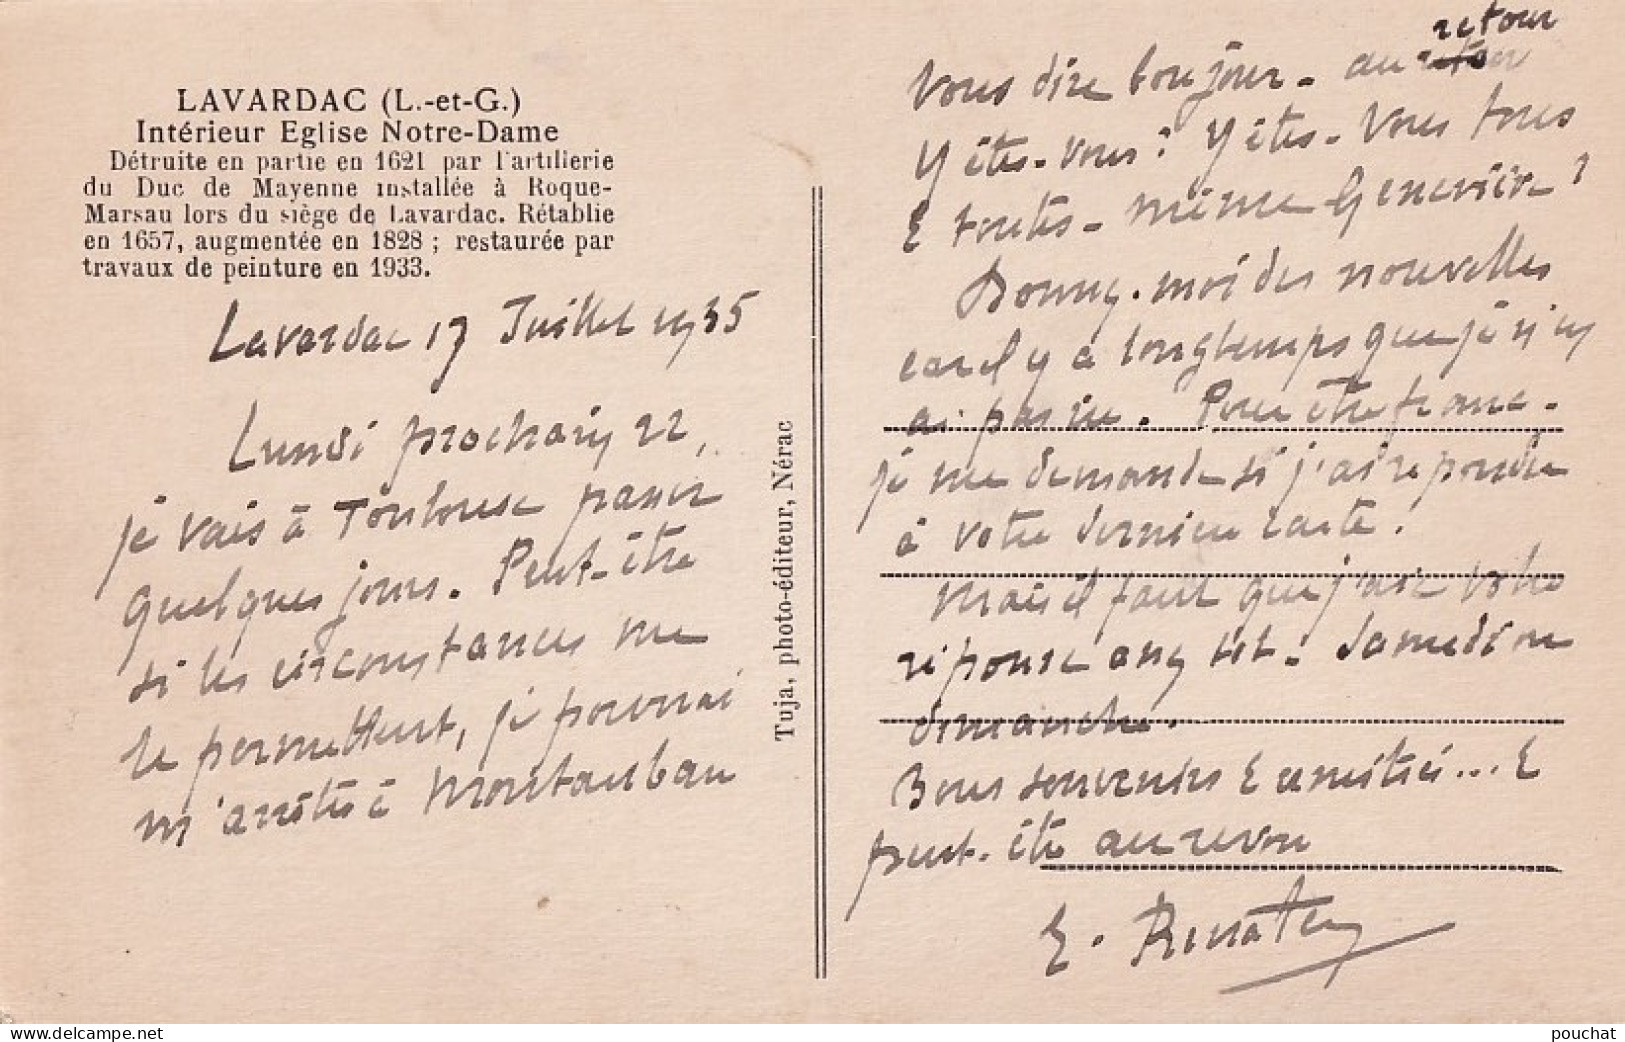 LAVARDAC (L.-et-G.)
Intérieur Eglise Notre-Dame
Détruite en partie en 1621 par l'artillerie
du Duc de Mayenne installée à Roque-
Marsau lors du siège de Lavardac. Rétablie
en 1657, augmentée en 1828 ; restaurée par
travaux de peinture en 1933.
Lavardac 17 Juillet 1935
Lundi prochain 22,
je vais à Toulouse passer
quelques jours. Peut-être
si les circonstances me
le permettent, je pourrai
m'arrêter à Montauban
Tuja, photo-éditeur, Nérac
retour
vous dire bonjour - au retour
Y êtes-vous? Y êtes-vous tous
& toutes - même Geneviève?
Donnez-moi des nouvelles
car il y a longtemps que je n'en
ai pas eu. Pour être franc -
je me demande si j'ai répondu
à votre dernière carte!
Mais il faut que j'aie votre
réponse assez tôt. Samedi ou
dimanche.
Bons souvenirs & amitiés... &
peut-être au revoir
E.
www.delcampe.net
pouchat